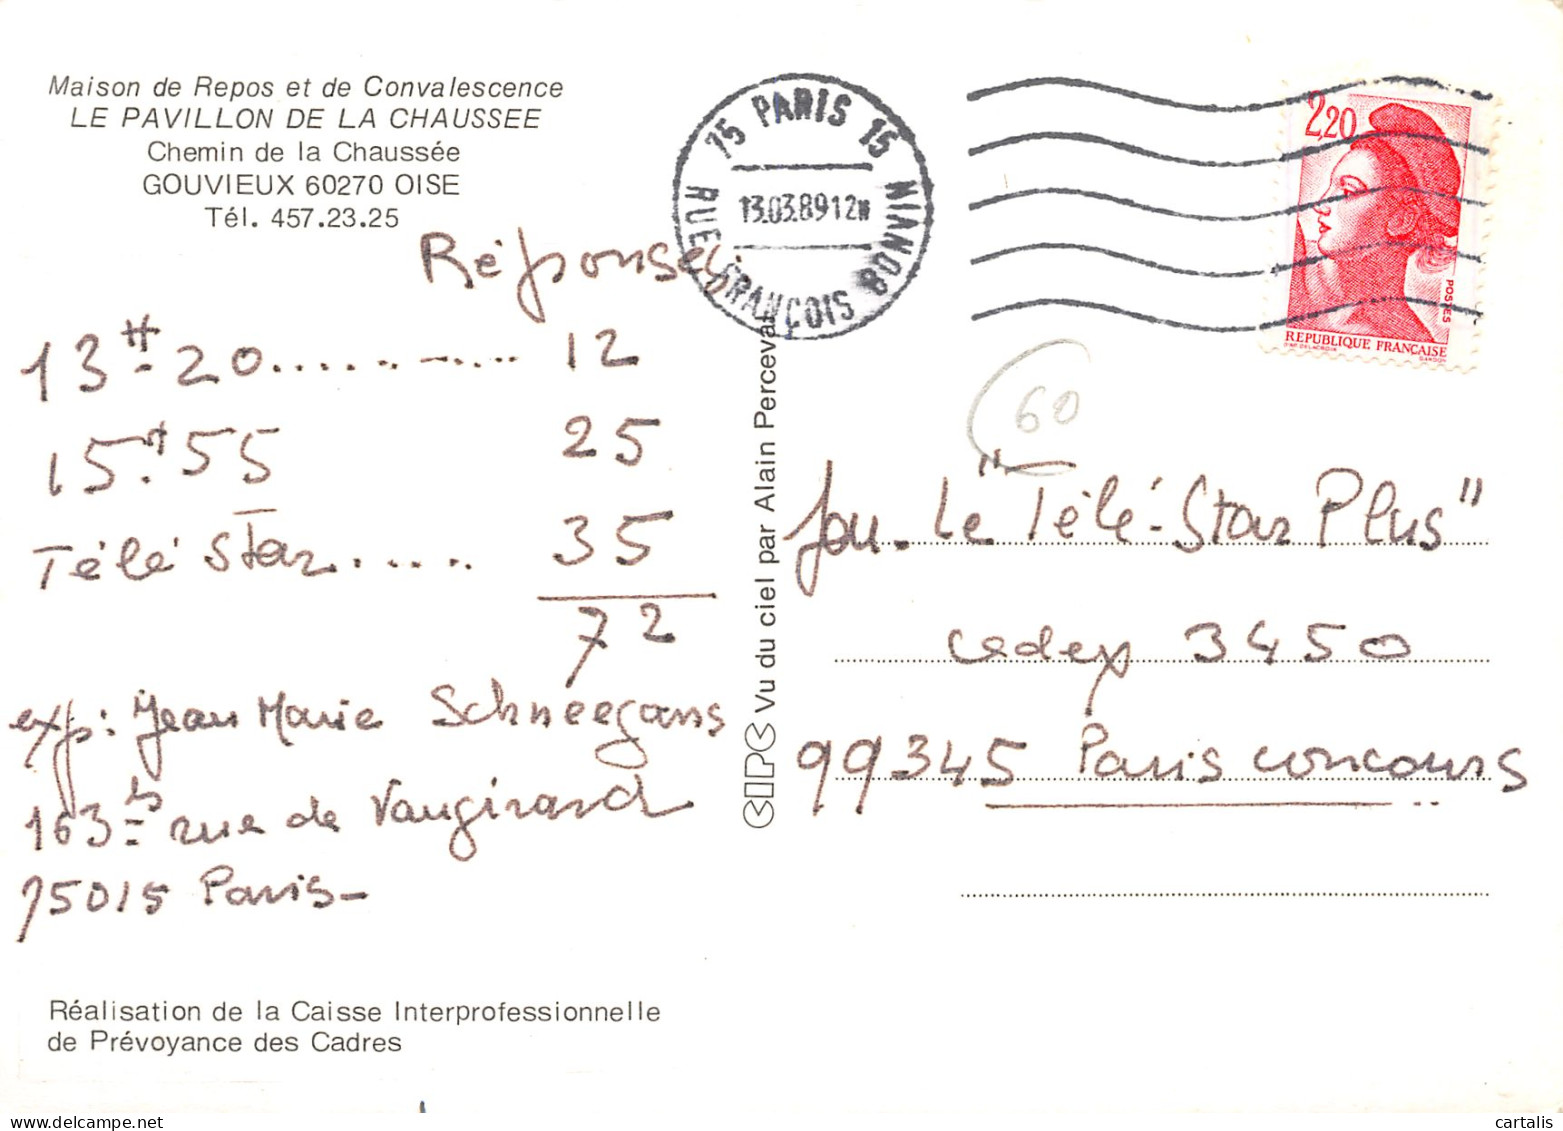 Maison de Repos et de Convalescence
LE PAVILLON DE LA CHAUSSEE
Chemin de la Chaussée
GOUVIEUX 60270 OISE
Tél. 457.23.25
Réponses
13H.20 ............ 12
15H.55 25
Télé Star ..... 35
72
exp: Jean Marie Schneegans
163 bis rue de Vaugirard
75015 Paris-
Réalisation de la Caisse Interprofessionnelle
de Prévoyance des Cadres
CIPC Vu du ciel par Alain Perceval
75 PARIS 15
13.03.89 12H
RUE FRANÇOIS BONVIN
2,20
POSTES
REPUBLIQUE FRANÇAISE
D'AP. DELACROIX
GANDON
60
Jeu. Le "Télé-Star Plus"
cedex 3450
99345 Paris concours
cartalis